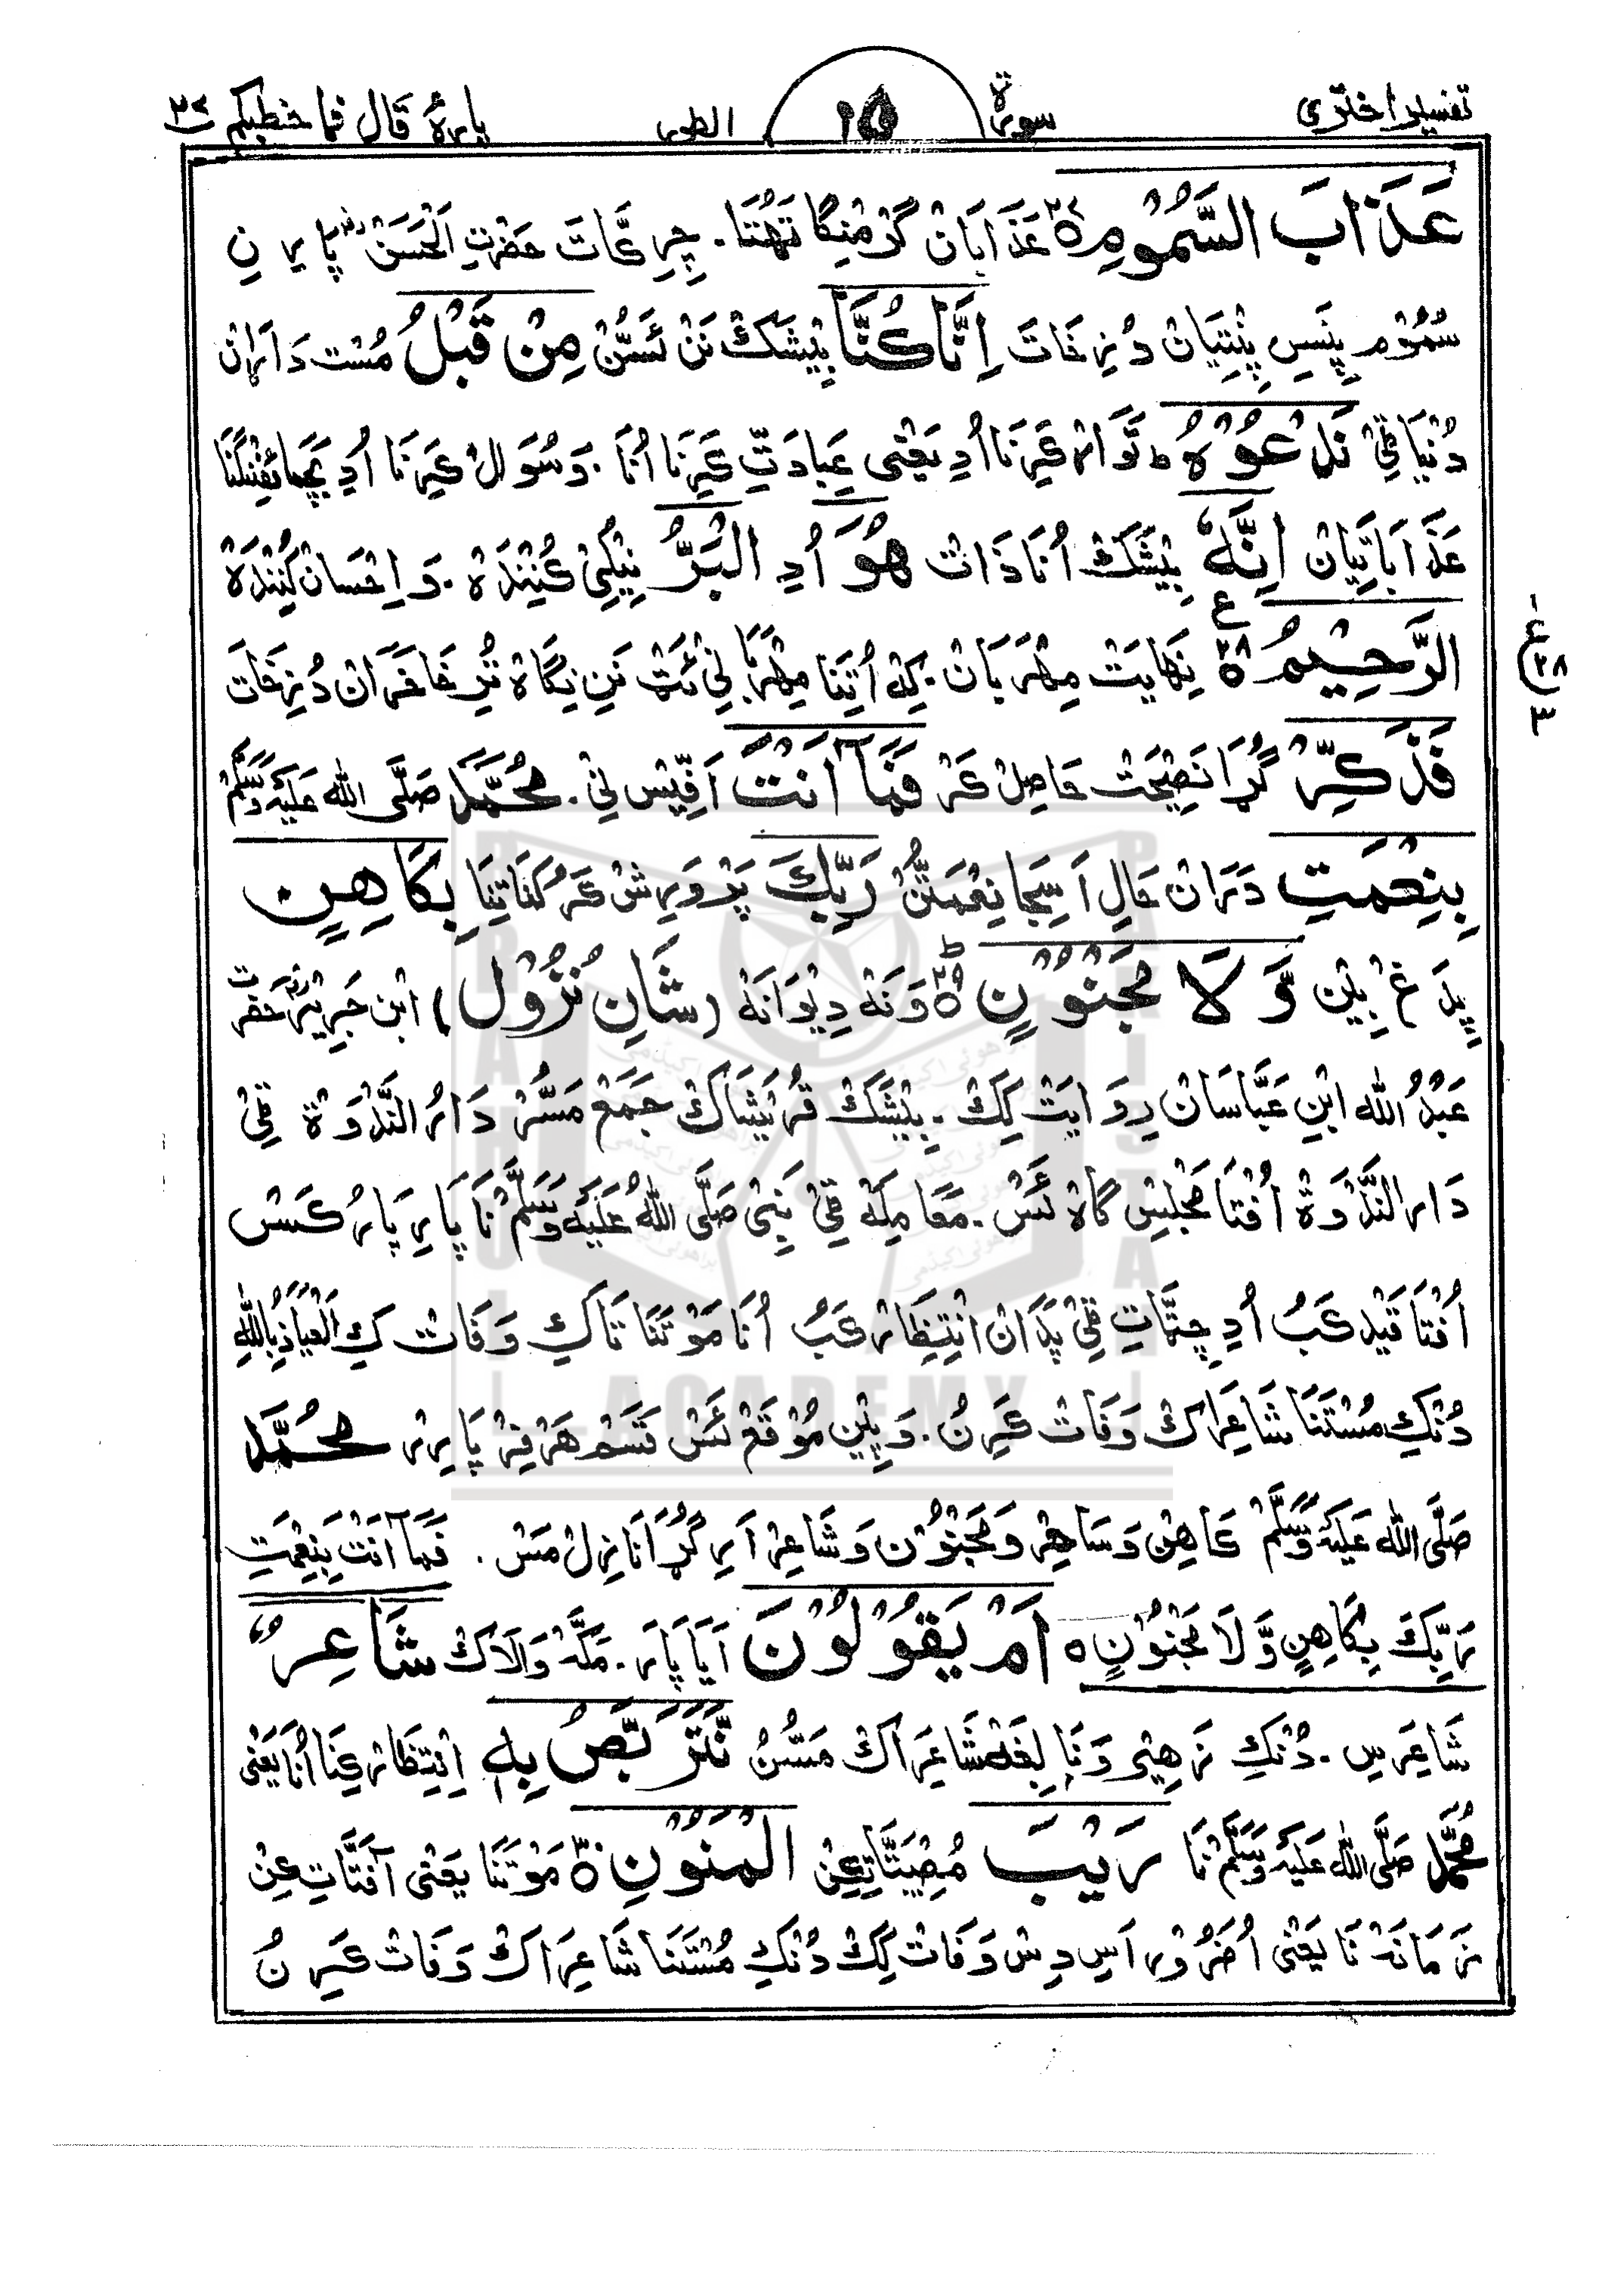 تفسیر اختری سورة ١٥ الطور پارۀ قال فما خطبکم ٢٧
عَذَابَ السَّمُومِ ٢٧ عَذَابَانْ گَرْمُنِگَا تَهُتَا . چِرِکَّاتَ حَضْرَتِ الْحَسَنْ رضہ پَا یرِ نِ
سُمُوْم پِنَسِ پِنْتِیَانْ دُنِرخَاتَ اِنَّا كُنَّا بِیْشَكْ نَنْ ئَسُّنْ مِنْ قَبْلُ مُسْت دَارَانْ
دُنْیَا فِیْ نَدْعُوْهُ ط تَوَامْ کَرِنَا اُدِ یَعْنِی عِبَادَتِ کَرِنَا اُنَا . وَسُوَالْ کَرِنَا اُدِ بَچَائِفِنْگنَا
عَذَابَاتِیَانْ اِنَّهٗ بِیْشَكْ اُنَا ذَاتْ هُوَ اُدِ الْبَرُّ نِیْکِیْ کُنِنْدَہْ . وَاِحْسَانْ کُنِنْدَہْ
الرَّحِيْمُ ٢٨ ع نِهَایَتْ مِهْرَبَانْ . کِہْ اُتِنَا مِهْرَبَانِیْ ئَتْ نَنِ نِگَاہْ تِرِخَا خَرَانْ دُنِرخَاتَ
فَذَكِّرْ گُڑَا نَصِیْحَتْ حَاصِلْ کَرْ فَمَآ اَنْتَ اَفِّیْس نِیْ . مُحَمَّدْ صَلَّی اللّٰہُ عَلَیْہِ وَسَلَّمْ
بِنِعْمَتِ دَرَانْ حَالِ اَسِجَا نِعْمَتُّنْ رَبِّكَ پَرْوَرِشْ کَرْکُنَاتِنَا بِكَاهِنٍ
پِیرَ غَ بِیْنِ وَّلَا مَجْنُوْنٍ ٢٩ ط وَنَہْ دِیْوَانَہْ (شَانِ نُزُوْل) اِبْنِ جَرِیْرْ حَضْرَتِ
عَبْدُ اللّٰہ ابْنِ عَبَّاسَانْ رِوَایَتْ کِكْ . بِیْشَكْ قُرَیْشَاكْ جَمَعْ مَسُّرْ دَارُ النَّدْوَةْ فِیْ
دَارالنَّدْوَةْ اُفْتَا مَجْلِسْ گَاہْ ئَسْ . مُعَامِلَہْ فِیْ نَبِیْ صَلَّی اللّٰہُ عَلَیْہِ وَسَلَّمْ نَا پَا یرِ پَا رْکَسْ
اُفْتَا قَیْدْ کَبُ اُدِ چِٹَّاتِ فِیْ پَدَانْ اِنْتِظَارْ کَبُ اُنَا مَوْتَنَا تَاكِ وَفَاتْ كِ الْعِیَاذُ بِاللّٰہِ
دُنْكِ مُسْتَنَا شَاعِرَاكْ وَفَاتْ کَرِنُ . وَبِیْنِ مُوْقَعْ ئَسْ قَسَمْ هَرْفِرْ پَا یرِرْ مُحَمَّدْ
صَلَّی اللّٰہُ عَلَیْہِ وَسَلَّمْ کَاهِنْ وَسَاحِرْ وَمَجْنُوْنْ وَشَاعِرْ اَیرِ گُڑَا نَازِلْ مَسْ . فَمَآ اَنْتَ بِنِعْمَتِ
رَبِّكَ بِكَاهِنٍ وَّلَا مَجْنُوْنٍ ہ اَمْ يَقُوْلُوْنَ آیَا پَارَہ . مَکَّہْ وَالَاكْ شَاعِرٌ
شَاعِرَسِ . دُنْكِ نَرهِیْر وَنَابِغَہْ شَاعِرَاكْ مَسُّنُ نَّتَرَبَّصُ بِهٖ اِنْتِظَارْ کِنَا اُنَا یَعْنِی
مُحَمَّدْ صَلَّی اللّٰہُ عَلَیْہِ وَسَلَّمْ نَا رَيْبَ مُصِیْبَتَّاتِعِنْ الْمَنُوْنِ ٣٠ مَوْتَنَا یَعْنِی آفَتَّاتِ عِنْ
زَمَانَہْ نَا یَعْنِی اُضَرُوْر اَسِ دِسْ وَفَاتْ کِكْ دُنْكِ مُسْتَنَا شَاعِرَاكْ وَفَاتْ کَرِنُ
ع ٢٨ ٣
BRAHUI ACADEMY PAKISTAN